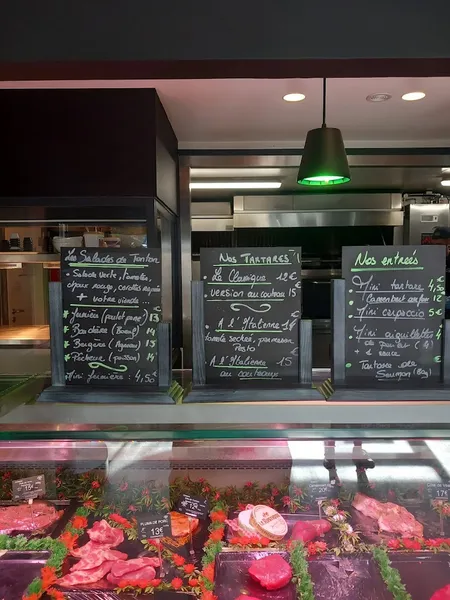 Les Salades de Tonton
Salade verte, tomates,
choux rouge, carottes rapées
+ votre viande ...
Fumière (poulet pané) 13
Bouchère (Boeuf) 14
Bugère (Agneau) 15
Pêcheur (poisson) 14
Mini fermière 4,50
Nos TARTARES !
Le Classique 12€
version au couteau 15
A l'Italienne 13
tomate sechée, parmesan
Pesto
A l'Italienne 15
au couteau
Nos entrées
Mini tartare 4,50
Camembert au four 12
Mini carpaccio 5€
Mini aiguillettes
de poulet (4)
+ sauce
Tartare de
Saumon
12€
PLUMA DE
13€
17€
13€